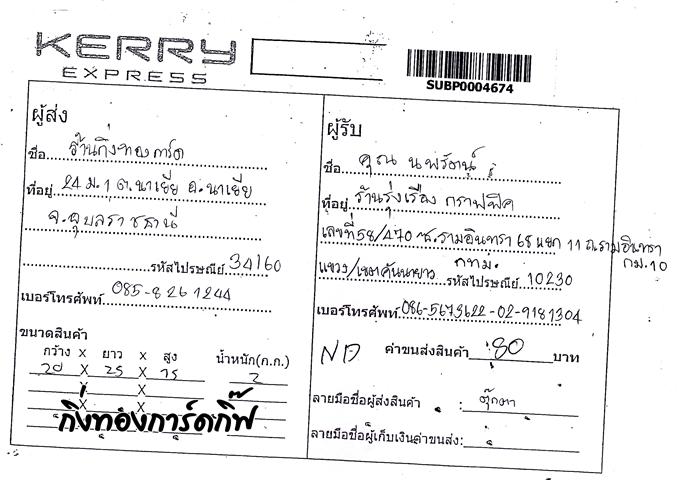 KERRY
EXPRESS
SUBP0004674
ผู้ส่ง
ชื่อ ร้านกิ่งทองการ์ด
ที่อยู่ 24 ม.1 ต.นาเยีย อ.นาเยีย
จ.อุบลราชธานี
รหัสไปรษณีย์ 34160
เบอร์โทรศัพท์ 085-8261244
ขนาดสินค้า
กว้าง x ยาว x สูง น้ำหนัก(ก.ก.)
20 X 25 X 15 2
X X
X X
กิ่งทองการ์ดกิ๊ฟ
ผู้รับ
ชื่อ คุณ นพรัตน์
ที่อยู่ ร้านรุ่งเรือง กราฟฟิค
เลขที่ 58/470 ซ.รามอินทรา 65 แยก 11 ถ.รามอินทรา
กม.10
แขวง/เขตคันนายาว กทม. รหัสไปรษณีย์ 10230
เบอร์โทรศัพท์ 086-5673622-02-9181304
ND ค่าขนส่งสินค้า 80 บาท
ลายมือชื่อผู้ส่งสินค้า : ตุ๊กตา
ลายมือชื่อผู้เก็บเงินค่าขนส่ง: